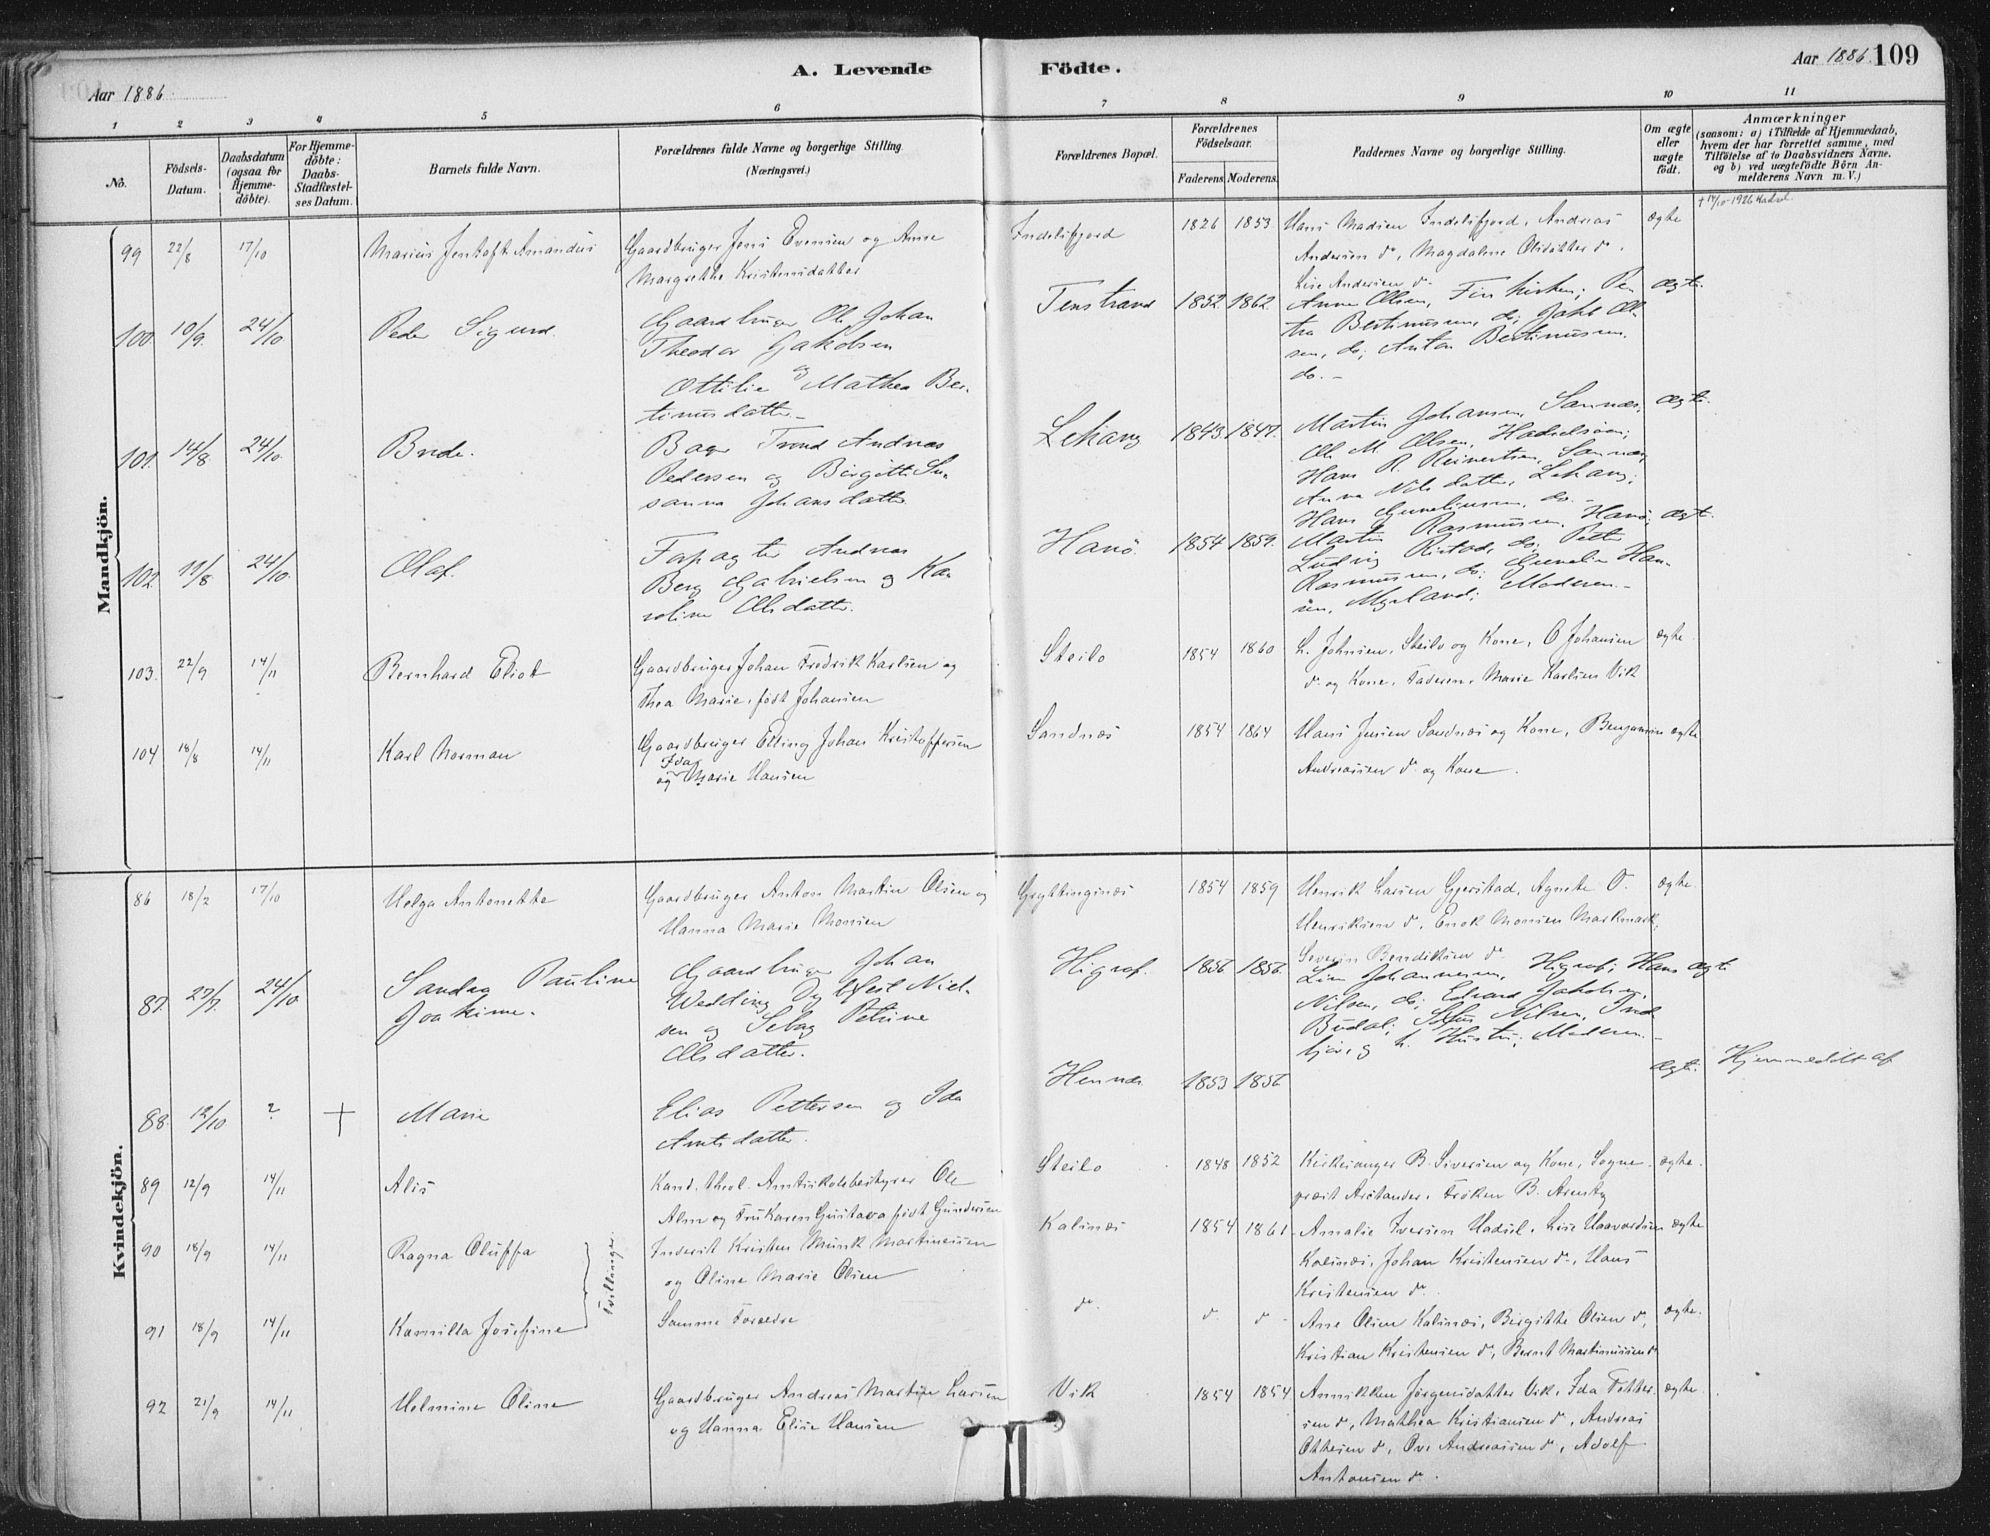 A. Levende Födte.
Aar 1886
Aar 1886 109
1 2 3 4 5 6 7 8 9 10 11
No.
Födsels-Datum.
Daabsdatum (ogsaa for Hjemmedöbte).
For Hjemmedöbte: Daabs-Stadfæstelses Datum.
Barnets fulde Navn.
Forældrenes fulde Navne og borgerlige Stilling (Næringsvei.)
Forældrenes Bopæl.
Forældrenes Födselsaar.
Faderens. Moderens.
Faddernes Navne og borgerlige Stilling.
Om ægte eller uægte födt.
Anmærkninger
(saasom: a) i Tilfælde af Hjemmedaab,
hvem der har forrettet samme, med
Tilföielse af to Daabsvidners Navne,
og b) ved uægtefödte Börn Anmelderens Navn m. V.)
Mandkjön.
99 22/8 17/10 Marius Jentoft Amandus
Gaardbruger Jens Evensen og Anne
Margrethe Kristensdatter
Indelsfjord 1826 1853
Hans Madsen Indelsfjord, Andreas
Andersen do, Magdalene Olsdatter do.
Lise Andersen do.
ægte
+ 14/10-1926 Hadsel
100 10/9 24/10 Peder Sigurd.
Gaardbruger Ole Johan
Theodor Jakobsen
og
Ottilie Mathea Ber-
tinusdatter.
Tenstrand 1852 1862
Anne Olsen, Finkirken; Pe
tra Bertinussen, do; Jakob Ol-
sen, do; Anton Bertinussen,
do.
ægte
101. 14/8 24/10
Bager Trond Andreas
Pedersen og Birgitte Su-
sanna Johansdatter
Lekang 1843 1847.
Martin Johansen, Sannæs,
Ole M. Olsen, Hadselsöen;
Hans R. Reinertsen, Sannæs,
Anna Nilsdatter, Lekang;
ægte.
102. 11/8 24/10 Olaf.
Andreas
Berg Gabrielsen og Ka-
roline Olsdatter.
Hanö. 1854 1859.
Martin Rasmussen, Hanö;
Ludvig Ristad, do; Petter
Rasmussen, do; Han-
sen, Myrland; Moderen.
ægte.
103. 22/9 14/11 Bernhard Eliot
Gaardbruger Johan Fredrik Karlsen og
Thea Marie, född Johansen
Steilo 1854 1860
L. Johnsen, Steilo og Kone, O Johansen
do og Kone, Faderen, Marie Karlsen Vik
ægte
104 18/8 14/11 Karl Norman
Gaardbruger Elling Johan Kristoffersen
og Ida Marie Hansen
Sandnæs 1854 1864
Hans Jensen Sandnæs og Kone, Benjamin
Andreassen do og Kone.
ægte
Kvindekjön.
86 18/2 17/10 Helga Antonette
Gaardbruger Anton Martin Olsen og
Hanna Marie Monsen
1854 1859
Henrik Larsen Gjerstad, Agnete O.
Henriksen do, Enok Monsen Markmark,
Severin Bendiksen do.
ægte.
87. 23/7. 24/10 Sandra Pauline
Joakime.
Gaardbruger Johan
Wedding Nielsen og Petrine
Olsdatter.
Higrav. 1856 1856
Johannessen, Higrav; Hans
Nilsen, do; Edvard Jakobsen,
Budal; Nilsen,
og h. Hustru; Moderen.
ægte
88. 12/10 ? + Marie
Elias Pettersen og Ida
Arntsdatter.
Hennæs 1853 1856
ægte. Hjemmedöbt af
89 12/9 14/11 Alis
Kand. theol. Amtsskolebestyrer Ole
Alm og Fru Karen Gustava född Gundersen
Steilo 1848 1852
Kirkesanger B. Siversen og Kone, Sogne-
præst Arctander, Fröken B.
ægte.
90 18/9 14/11 Ragna Oluffa
Tvillinger.
Inderst Kristen Munk Martinussen
og Oline Marie Olsen
Kalsnæs 1854 1861
Amalie Iversen Hadsel, Lise Haavardsen
Kalsnæs, Johan Kristensen do, Hans
Kristensen do.
ægte
91 18/9 14/11 Kamilla Josefine
Samme Forældre
do. do. do.
Ane Olsen Kalsnæs, Birgitte Olsen do,
Kristian Kristensen do, Bernt Martinussen do
ægte.
92 21/9 14/11 Helmine Oline
Gaardbruger Andreas Martin Larsen
og Hanna Elise Hansen
Vik 1854 1854
Annikken Jörgensdatter Vik, Ida Petter-
sen do, Mathea Kristiansen do, Andreas
Ottesen do, Ove Andreassen do, Adolf
Antonsen do.
ægte.